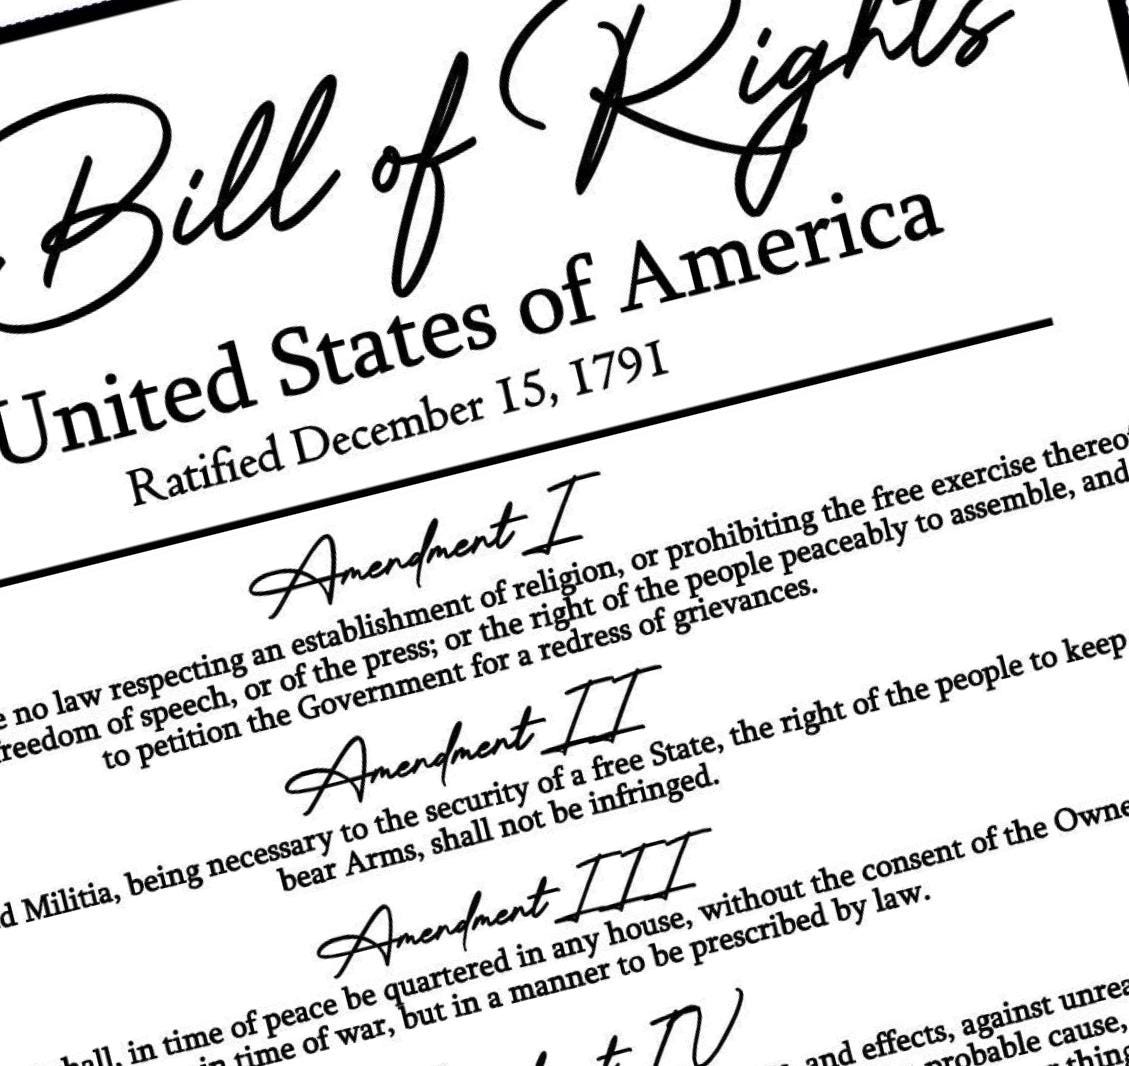 Bill of Rights
United States of America
Ratified December 15, 1791
Amendment I
no law respecting an establishment of religion, or prohibiting the free exercise
of speech, or of the press; or the right of the people peaceably to assemble, and
to petition the Government for a redress of grievances.
Amendment II
Militia, being necessary to the security of a free State, the right of the people to keep
bear Arms, shall not be infringed.
Amendment III
in time of peace be quartered in any house, without the consent of the
in time of war, but in a manner to be prescribed by law.
IV
and effects, against
probable cause,